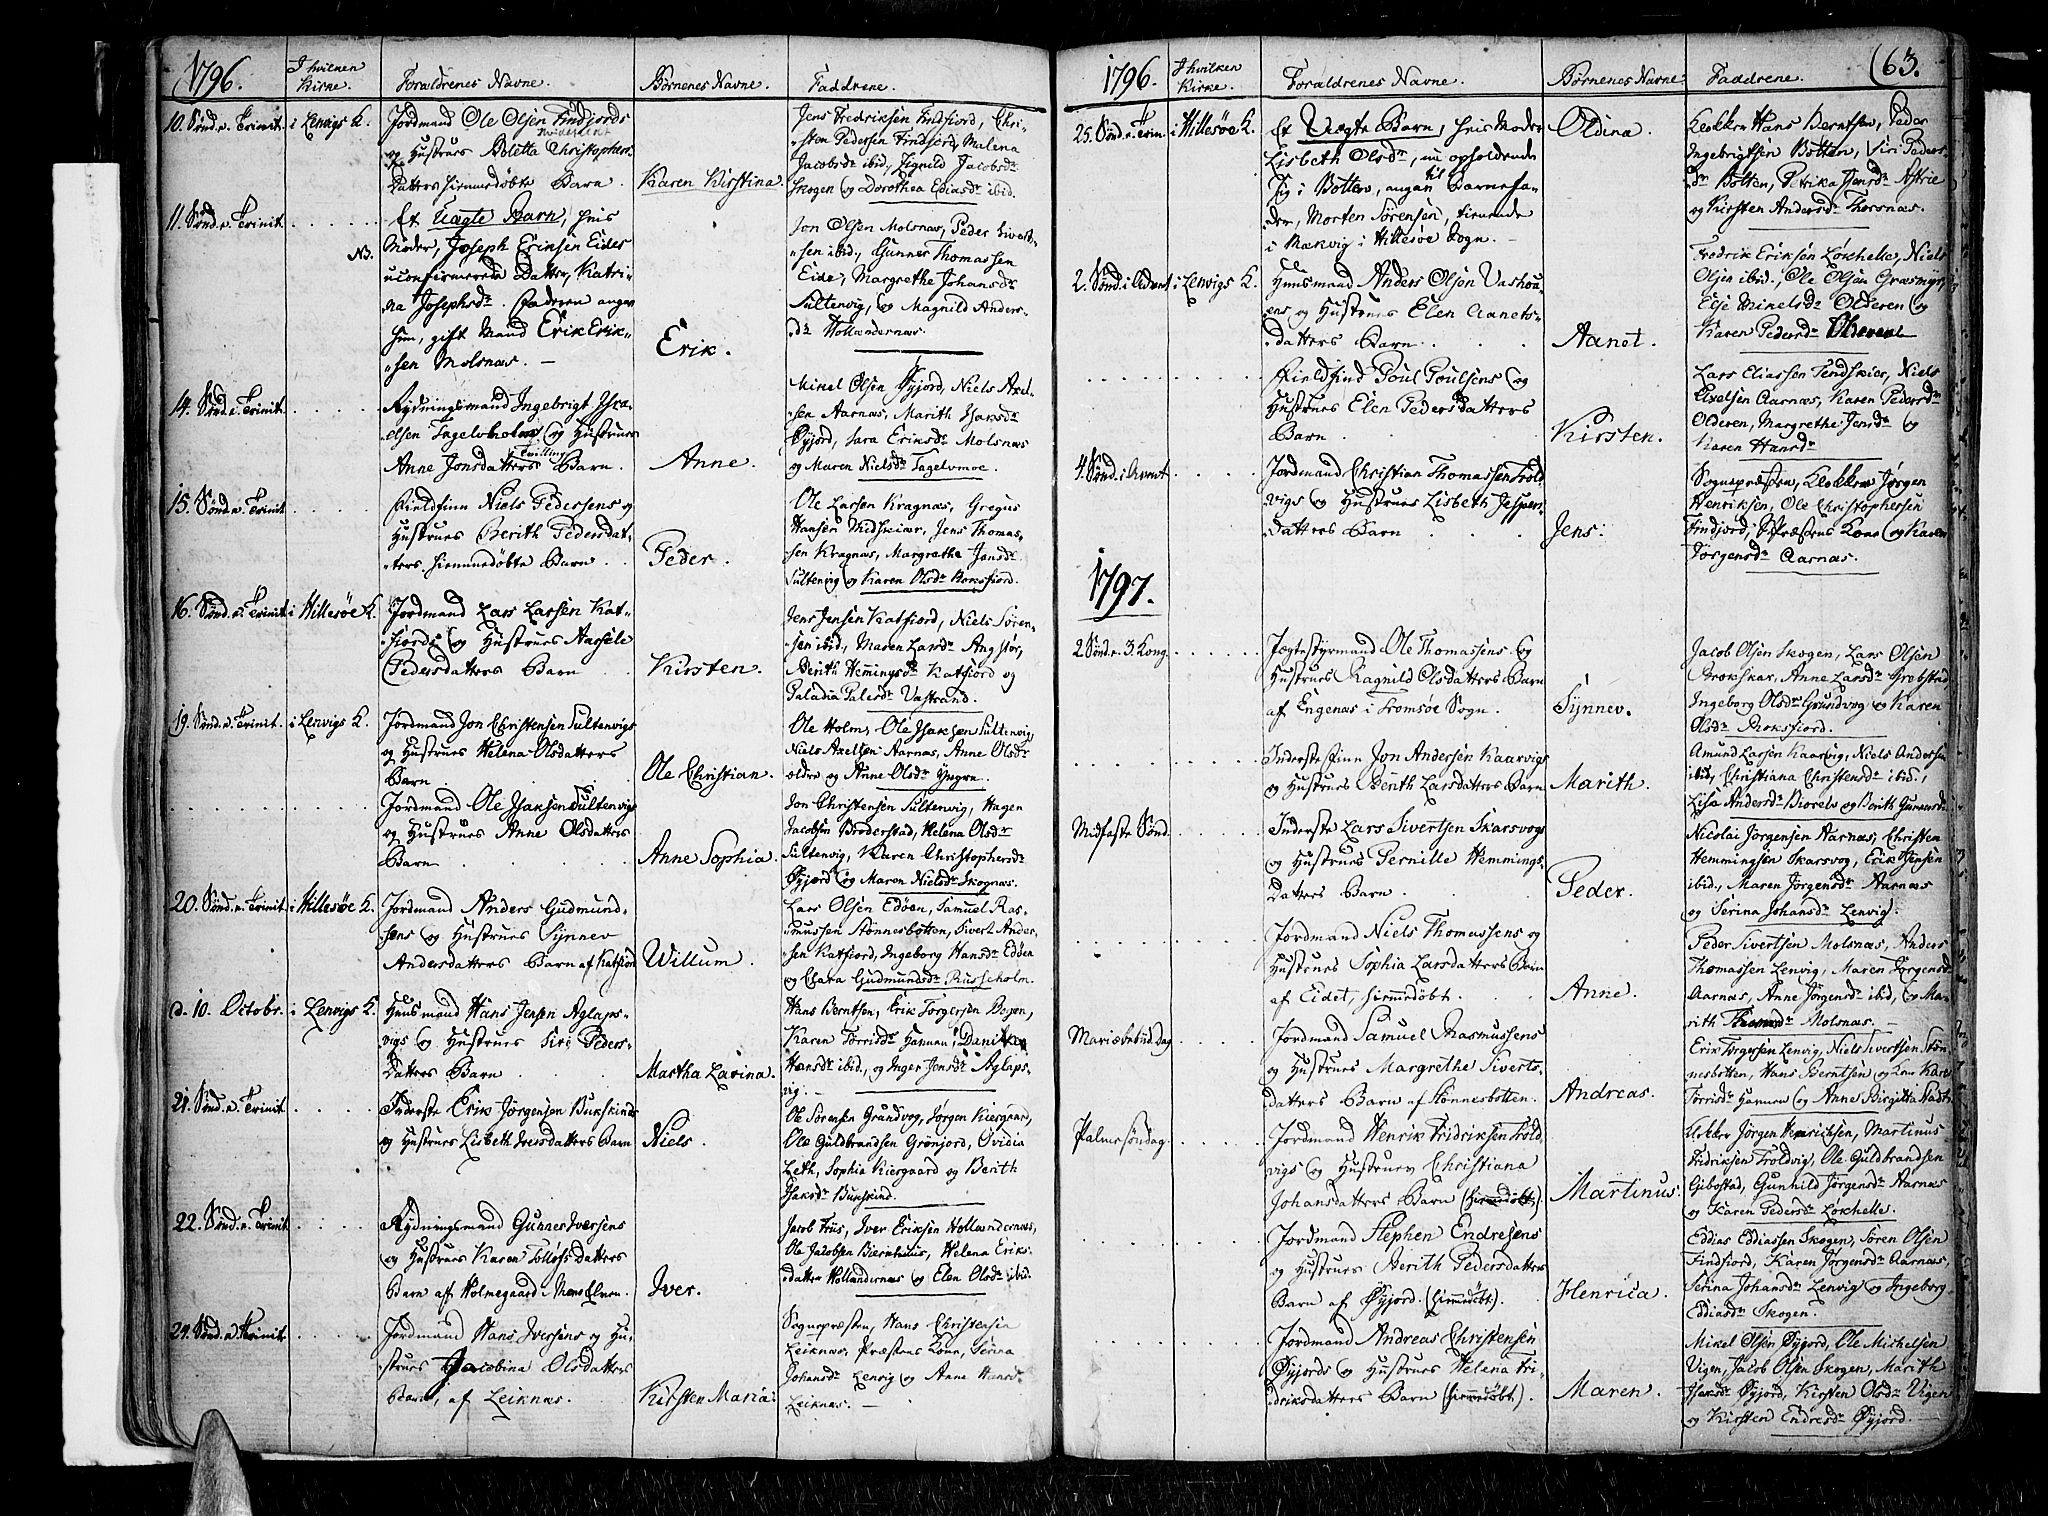 1796.
I hvilken Kirke.
Foraldrenes Navne.
Børnenes Navne.
Faddrene.
10. Sønd. e. Trinit.
i Lenvigs K.
Jordmand Ole Olsen Findfjords
og Hustrues Boletta Christophers
Datters hiemmedøbte Barn.
Karen Kirstina.
Jens Fredriksen Findfiord, Chri-
sten Pedersen Findfiord, Malena
Jacobsdr ibid, Zignild Jacobsdr
Skogen og Dorothea Eliasdr ibid.
11. Sønd. e. Trinit.
NB.
Et Uægte Barn, hvis
Moder, Joseph Eriksen Eides
uconfirmerede Datter, Katri-
na Josephsdr. Faderen angav
hun, gift Mand Erik Erik-
sen Molsnæs. —
Erik.
Jon Olsen Molsnæs, Peder Sivert-
sen ibid, Gunner Thomassen
Eide, Margrethe Johansdr
Sultenvig, og Magnild Anders-
dr Hollendernæs.
14. Sønd. e. Trinit.
Rydningsmand Ingebrigt Isra-
elsen Tagelvholm og Hustrues
Anne Jonsdatters Tvilling Barn.
Anne.
Mikel Olsen Øyjord, Niels Axel-
sen Aarnæs, Marith Isaksdr
Øyjord, Sara Eriksdr Molsnæs
og Maren Nielsdr Tagelvmoe.
15. Sønd. e. Trinit.
Fieldfinn Niels Pedersens og
Hustrues Berith Pedersdat-
ters hiemmedøbte Barn.
Peder.
Ole Larsen Kragnæs, Gregus
Hansen Midskiær, Jens Thomas-
sen Kragnæs, Margrethe Jensdr
Sultenvig og Karen Olsdr Roksfiord.
16. Sønd. e. Trinit.
i Hillesøe K.
Jordmand Lars Larsen Kat-
fiords og Hustrues Aasele
Pedersdatters Barn
Kirsten.
Jens Jensen Katfiord, Niels Sören-
sen ibid, Maren Larsdr Angstør,
Berith Hemingsdr Katfiord og
Paladia Palesdr Vastrand.
19. Sønd. e. Trinit.
i Lenvigs K.
Jordmand Jon Christensen Sultenvigs
og Hustrues Helena Olsdatters
Barn
Ole Christian.
Ole Holm, Ole Isaksen Sultenvig,
Niels Axelsen Aarnæs, Anne Olsdr
ældre og Anne Olsdr Yngre.
Jordmand Ole Isaksen Sultenvigs
og Hustrues Anne Olsdatters
Barn
Anne Sophia.
Jon Christensen Sultenvig, Hagen
Jacobsen Broderstad, Helena Olsdr
Sultenvig, Karen Christophersdr
Øyjord og Maren Nielsdr Skognæs.
20. Sønd. e. Trinit.
i Hillesøe K.
Jordmand Anders Gudmund-
sens og Hustrues Synnev
Andersdatters Barn af Katfiord
Willum.
Lars Olsen Edøen, Samuel Ras-
mussen Stønnesbotten, Sivert Ander-
sen Katfiord, Ingeborg Hansdr Edøen
og Clara Gudmundsdr Russeholm.
d. 10. Octobr.
i Lenvigs K.
Huusmand Hans Jensen Aglaps-
vigs og Hustrues Siri Peders-
Datters Barn
Martha Lavina.
Hans Berntsen, Erik Torgersen Bejen,
Karen Torrisdr Hamnen, Danikka
Hansdr ibid, og Inger Jensdr Aglaps-
vig.
21. Sønd. e. Trinit.
Inderste Erik Jörgensen Bukskinds
og Hustrues Lisbeth Iversdatters Barn
Niels.
Ole Sörensen Grundvog, Jørgen Kiergaard,
Ole Guldbrandsen Grønjord, Ovidia
Leth, Sophia Kiergaard og Berith
Isaksdr Bukskind.
22. Sønd. e. Trinit.
Rydningsmand Gunnes Iversens
og Hustrues Karen Tolløfs Datters
Barn af Holmegaard i Maaselven.
Iver.
Jacob Frus, Iver Eriksen Hollændernæs,
Ole Jacobsen Biernhuus, Helena Eriks-
datter Hollændernæs og Elen Olsdr ibid.
24. Sønd. e. Trinit.
Jordmand Hans Iversens og Hu-
strues Jacobina Olsdatters
Barn, af Leiknæs.
Kirsten Maria.
Sognepræsten, Hans Christensen
Leiknæs, Præstens Kone, Serina
Johansdr Lenvig og Anne Hansdr
Leiknæs. —
63.
1796.
I hvilken Kirke.
Foraldrenes Navne.
Børnenes Navne.
Faddrene.
25. Sønd. e. Trin.
i Hillesøe K.
Et Uægte Barn, hvis Moder
Lisbeth Olsdr, nu opholdende
sig i Botten, angav til Barnefa-
der, Morten Sørensen, tienende
i Mækvig i Hillesøe Sogn. —
Oldina.
Klokker Hans Berntsen, Peder
Ingebrigtsen Botten, Siri Peders-
dr Botten, Petrika Jensdr Astrie
og Kirsten Andersdr Thorsnæs.
2. Sønd. i Advent
i Lenvigs K.
Huusmand Anders Olsen Vashou-
ens og Hustrues Elen Aanets-
datters Barn
Aanet.
Fredrik Eriksen Løkhelle, Niels
Olsen ibid, Ole Olsen Græsmyr,
Else Mikelsdr Olderen og
Karen Pedersdr Olderen
Fieldfind Poul Poulsens og
Hustrues Elen Pedersdatters
Barn
Kirsten.
Lars Eliassen Tendskier, Niels
Axelsen Aarnæs, Karen Pedersdr
Olderen, Margrethe Jensdr og
Karen Hansdr
4. Sønd. i Advent
Jordmand Christian Thomassen Trold-
vigs og Hustrues Lisbeth Jesper-
datters Barn
Jens.
Sognepræsten, Klokker Jørgen
Henriksen, Ole Christophersen
Findfjord, Præstens Kone og Karen
Jørgensdr Aarnæs.
1797.
2 Sønd. e. 3. Kong.
Jægtestyrmand Ole Thomassens og
Hustrues Ragnild Olsdatters Barn
af Engenæs i Tromsøe Sogn.
Synnev.
Jacob Olsen Skogen, Lars Olsen
Brokskar, Anne Larsdr Grebstad,
Ingeborg Olsdr Grundvog og Karen
Olsdr Roksfiord.
Inderste Finn Jon Andersen Kaarvigs
og Hustrues Berith Larsdatters Barn
Marith.
Amund Larsen Kaarvig, Niels Andersen
ibid, Christiana Christensdr ibid,
Lisa Andersdr Biorelv og Berith Gunnersdr
Midfaste Sønd.
Inderste Lars Sivertsen Skarsvogs
og Hustrues Pernille Hemmings-
datters Barn
Peder.
Nicolai Jørgensen Aarnæs, Christen
Hemmingsen Skarsvog, Erik Jensen
ibid, Maren Jørgensdr Aarnæs
og Serina Johansdr Lenvig.
Jordmand Niels Thomassens og
Hustrues Sophia Larsdatters Barn
af Eidet, hiemmedøbt.
Anne.
Peder Sivertsen Molsnæs, Anders
Thomassen Lenvig, Maren Jørgensdr
Aarnæs, Anne Jørgensdr ibid, og Ma-
rith Thomasdr Molsnæs.
Mariæ bebud. Dag
Jordmand Samuel Rasmussens
og Hustrues Margrethe Siverts-
datters Barn af Stønnesbotten.
Andreas.
Erik Torgersen Lenvig, Niels Sivertsen Støn-
nesbotten, Hans Berntsen og Kone Karen
Torrisdr Hamnen og Anne Birgitta Hadt
Palmesøndag
Jordmand Henrik Fridriksen Trold-
vigs og Hustrues Christiana
Johansdatters Barn (hiemmedøbt).
Martinus.
Klokker Jørgen Henrichsen, Martinus
Fridriksen Troldvig, Ole Guldbrandsen
Gibostad, Gunhild Jørgensdr Aarnæs
og Karen Pedersdr Løkhelle.
Jordmand Stephen Endresens
og Hustrues Berith Pedersdatters
Barn af Øyjord. (hiemmedøbt.)
Henrica.
Eddias Eddiassen Skogen, Sören Olsen
Findfiord, Karen Jørgensdr Aarnæs,
Serina Johansdr Lenvig og Ingeborg
Eddiasdr Skogen.
Jordmand Andreas Christensen
Øyjords og Hustrues Helena Fri-
driksdatters Barn (hiemmedøbt).
Maren.
Mikel Olsen Øyjord, Ole Michelsen
Vigen, Jacob Olsen Skogen, Marith
Isaksdr Øyjord, Kirsten Olsdr Vigen
og Kirsten Endresdr Øyjord.